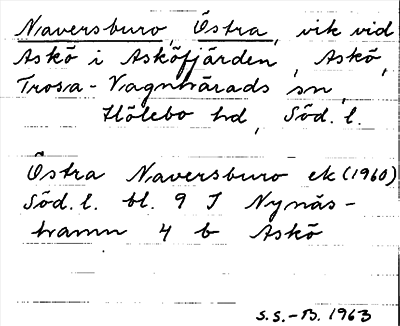 Naversburo, Östra, vik vid
Askö i Asköfjärden, Askö,
Trosa-Vagnhärads sn,
Hölebo hd, Söd. l.
Östra Naversburo ek (1960)
Söd. l. bl. 9 I Nynäs-
hamn 4 b Askö
S.S.-B. 1963